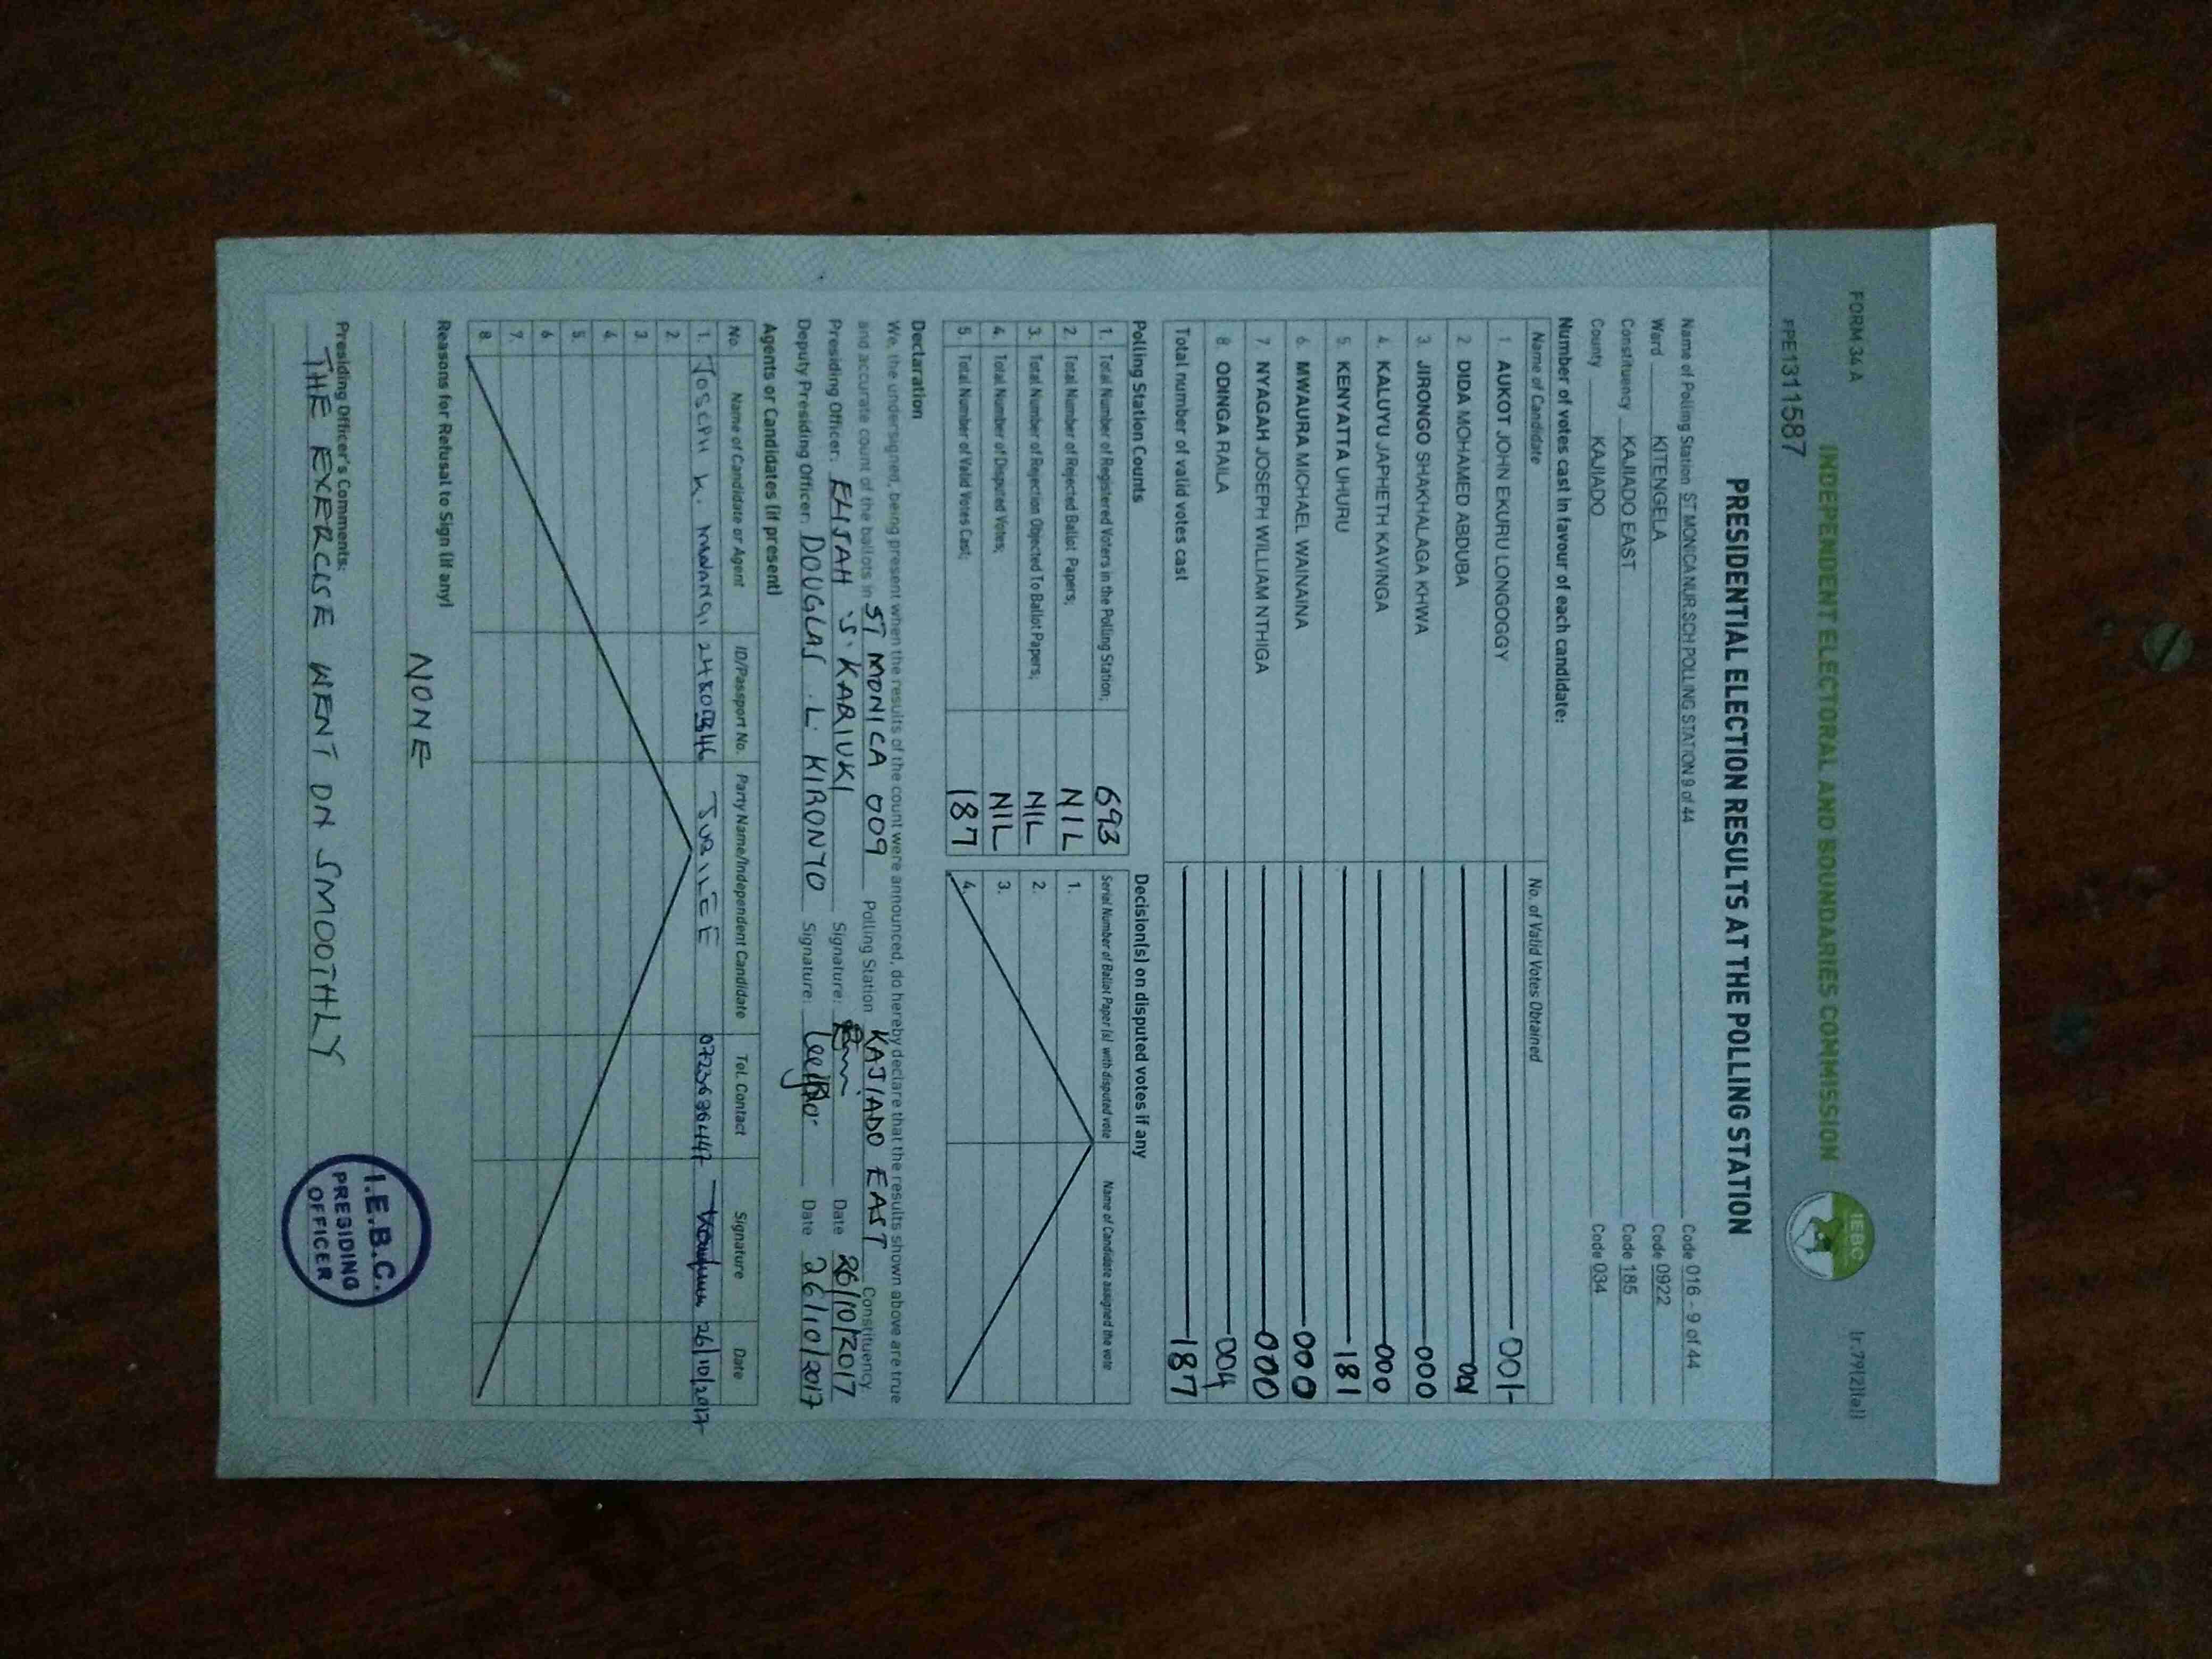 FORM 34 A
INDEPENDENT ELECTORAL AND BOUNDARIES COMMISSION
IEBC
(r.79(2)(a))
FPE1311587
PRESIDENTIAL ELECTION RESULTS AT THE POLLING STATION
Name of Polling Station ST MONICA NUR.SCH POLLING STATION 9 of 44 Code 016 - 9 of 44
Ward KITENGELA Code 0922
Constituency KAJIADO EAST Code 185
County KAJIADO Code 034
Number of votes cast in favour of each candidate:
Name of Candidate No. of Valid Votes Obtained
1. AUKOT JOHN EKURU LONGOGGY 001
2. DIDA MOHAMED ABDUBA 001
3. JIRONGO SHAKHALAGA KHWA 000
4. KALUYU JAPHETH KAVINGA 000
5. KENYATTA UHURU 181
6. MWAURA MICHAEL WAINAINA 000
7. NYAGAH JOSEPH WILLIAM NTHIGA 000
8. ODINGA RAILA 004
Total number of valid votes cast 187
Polling Station Counts Decision(s) on disputed votes if any
1. Total Number of Registered Voters in the Polling Station; 693 Serial Number of Ballot Paper (s) with disputed vote Name of Candidate assigned the vote
2. Total Number of Rejected Ballot Papers; NIL 1.
3. Total Number of Rejection Objected To Ballot Papers; NIL 2.
4. Total Number of Disputed Votes; NIL 3.
5. Total Number of Valid Votes Cast; 187 4.
Declaration
We, the undersigned, being present when the results of the count were announced, do hereby declare that the results shown above are true
and accurate count of the ballots in ST MONICA 009 Polling Station KAJIADO EAST Constituency
Presiding Officer: ELIJAH S. KARIUKI Signature: Date 26/10/2017
Deputy Presiding Officer: DOUGLAS . L. KIRONYO Signature: Date 26/10/2017
Agents or Candidates (if present)
No. Name of Candidate or Agent ID/Passport No. Party Name/Independent Candidate Tel. Contact Signature Date
1. Joseph K. Mwangi JUBILEE 26/10/2017
2
3
4
5
6
7.
8.
Reasons for Refusal to Sign (if any)
NONE
Presiding Officer's Comments:
THE EXERCISE WENT ON SMOOTHLY
I.E.B.C.
PRESIDING
OFFICER